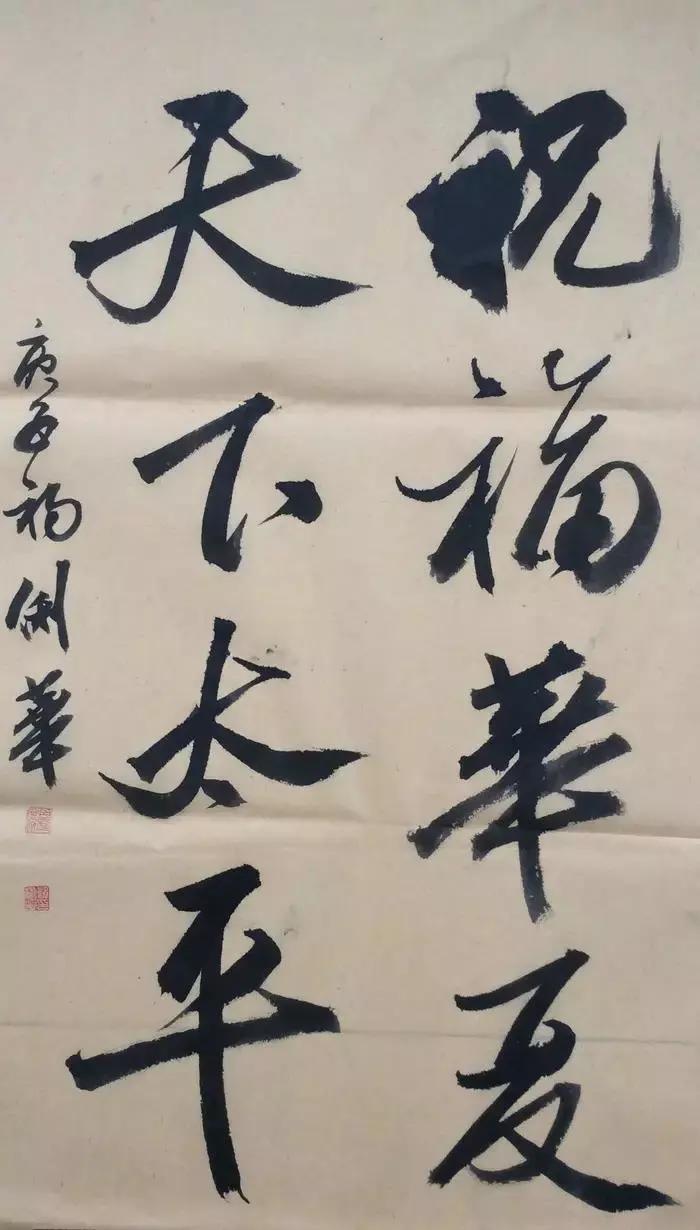 祝福華夏
天下太平
庚子初俐華